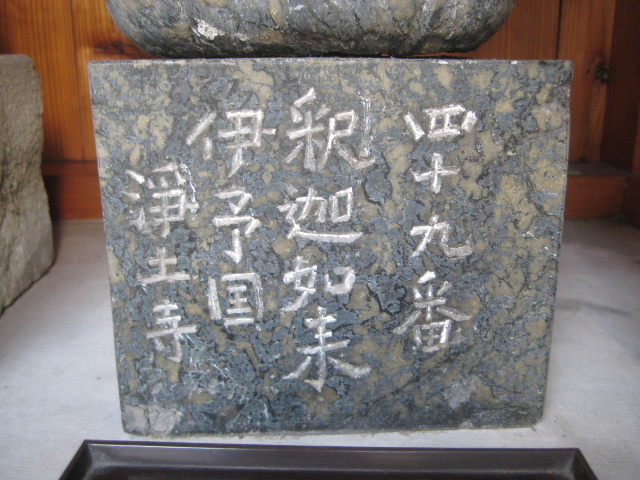 四十九番
釈迦如来
伊予国
淨土寺